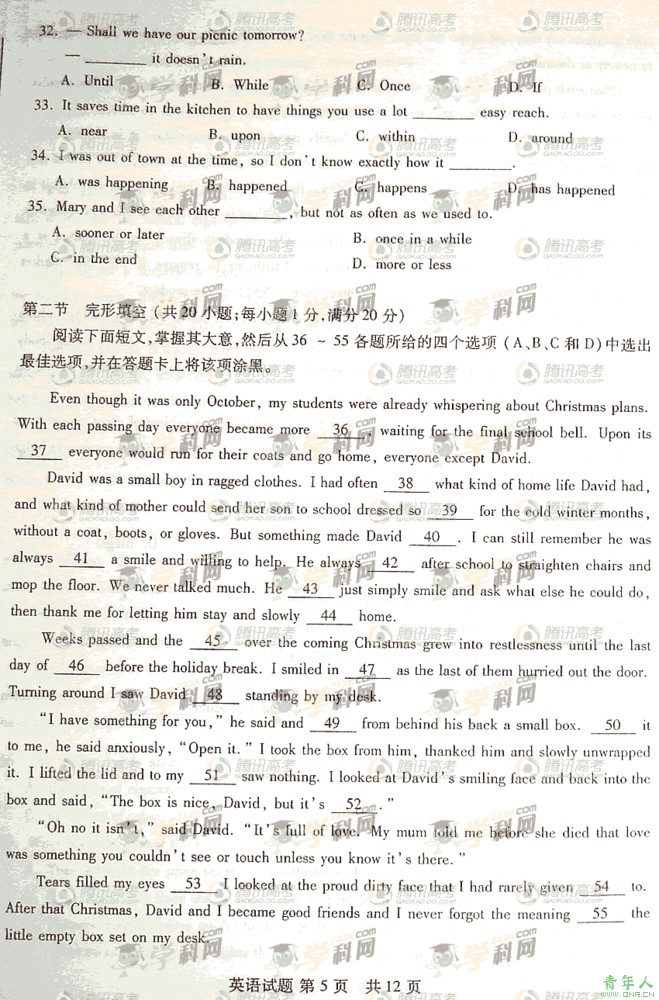 32. — Shall we have our picnic tomorrow?
— ________ it doesn't rain.
A. Until B. While C. Once D. If
33. It saves time in the kitchen to have things you use a lot ________ easy reach.
A. near B. upon C. within D. around
34. I was out of town at the time, so I don't know exactly how it ________.
A. was happening B. happened C. happens D. has happened
35. Mary and I see each other ________, but not as often as we used to.
A. sooner or later B. once in a while
C. in the end D. more or less
第二节 完形填空 (共20小题;每小题1分,满分20分)
阅读下面短文,掌握其大意,然后从36 ~ 55各题所给的四个选项 (A、B、C和D)中选出
最佳选项,并在答题卡上将该项涂黑。
Even though it was only October, my students were already whispering about Christmas plans.
With each passing day everyone became more 36 , waiting for the final school bell. Upon its
37 everyone would run for their coats and go home, everyone except David.
David was a small boy in ragged clothes. I had often 38 what kind of home life David had,
and what kind of mother could send her son to school dressed so 39 for the cold winter months,
without a coat, boots, or gloves. But something made David 40 . I can still remember he was
always 41 a smile and willing to help. He always 42 after school to straighten chairs and
mop the floor. We never talked much. He 43 just simply smile and ask what else he could do,
then thank me for letting him stay and slowly 44 home.
Weeks passed and the 45 over the coming Christmas grew into restlessness until the last
day of 46 before the holiday break. I smiled in 47 as the last of them hurried out the door.
Turning around I saw David 48 standing by my desk.
"I have something for you," he said and 49 from behind his back a small box. 50 it
to me, he said anxiously, "Open it." I took the box from him, thanked him and slowly unwrapped
it. I lifted the lid and to my 51 saw nothing. I looked at David's smiling face and back into the
box and said, "The box is nice, David, but it's 52 ."
"Oh no it isn't," said David. "It's full of love. My mum told me before she died that love
was something you couldn't see or touch unless you know it's there."
Tears filled my eyes 53 I looked at the proud dirty face that I had rarely given 54 to.
After that Christmas, David and I became good friends and I never forgot the meaning 55 the
little empty box set on my desk.
英语试题 第5页 共12页
青年人
www.QNR.cn